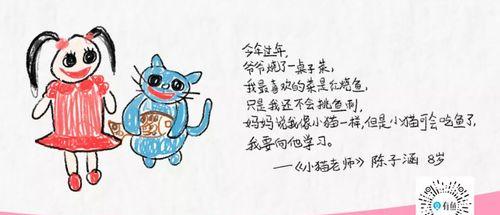 今年过年,
爷爷烧了一桌子菜,
我最喜欢的菜是红烧鱼,
只是我还不会挑鱼刺,
妈妈说我像小猫一样,但是小猫可会吃鱼了,
我要向他学习。
——《小猫老师》 陈子涵 8岁
有鱼